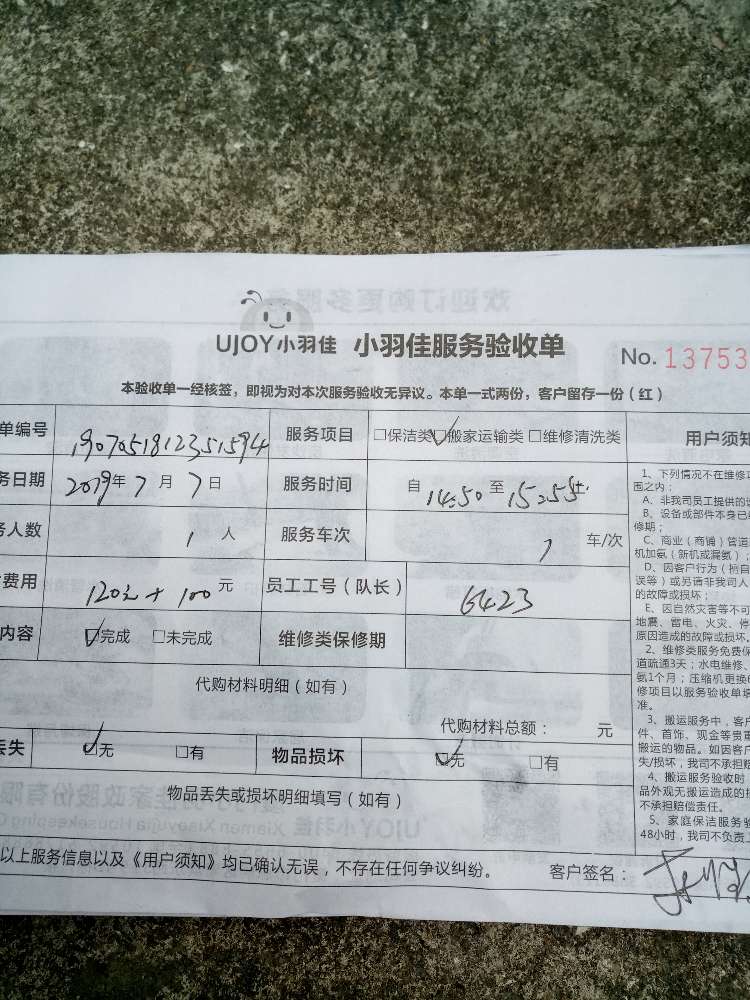 UJOY小羽佳 小羽佳服务验收单 No. 13753
本验收单一经核签，即视为对本次服务验收无异议。本单一式两份，客户留存一份（红）
单编号 1907051812351594 服务项目 □保洁类 ☑搬家运输类 □维修清洗类 用户须知
务日期 2019年7月7日 服务时间 自14:50至15:255
务人数 1 人 服务车次 车/次
费用 120元+100 元 员工工号（队长） 6423
内容 ☑完成 □未完成 维修类保修期
代购材料明细（如有）
代购材料总额： 元
丢失 ☑无 □有 物品损坏 ☑无 □有
物品丢失或损坏明细填写（如有）
以上服务信息以及《用户须知》均已确认无误，不存在任何争议纠纷。 客户签名：
1、下列情况不在维修
围之内：
A、非我司员工提供的
B、设备或部件本身已
修期；
C、商业（商铺）管道
机加氨（新机或漏氨）；
D、因客户行为（擅自
误等）或另请非我司人
的故障或损坏；
E、因自然灾害等不可
地震、雷电、火灾、停
原因造成的故障或损坏。
2、维修类服务免费保
道疏通3天；水电维修、
氨1个月；压缩机更换
修项目以服务验收单
准。
3、搬运服务中，客户
件、首饰、现金等贵重
搬运的物品。如因客户
失/损坏，我司不承担赔
4、搬运服务验收时
品外观无搬运造成的
不承担赔偿责任。
5、家庭保洁服务验
48小时，我司不负责